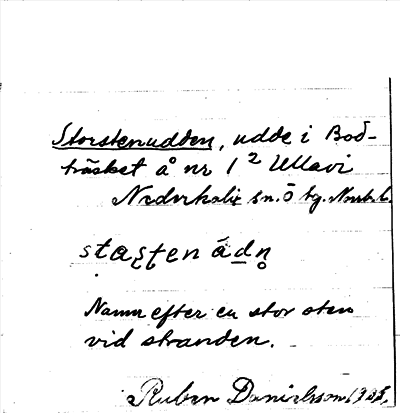 Storstenudden, udde i Bod-
träsket å nr 1² Ullavi
Nederkalix sn. ö tg. Norrb. l.
Namn efter en stor sten
vid stranden.
Ruben Danielsson